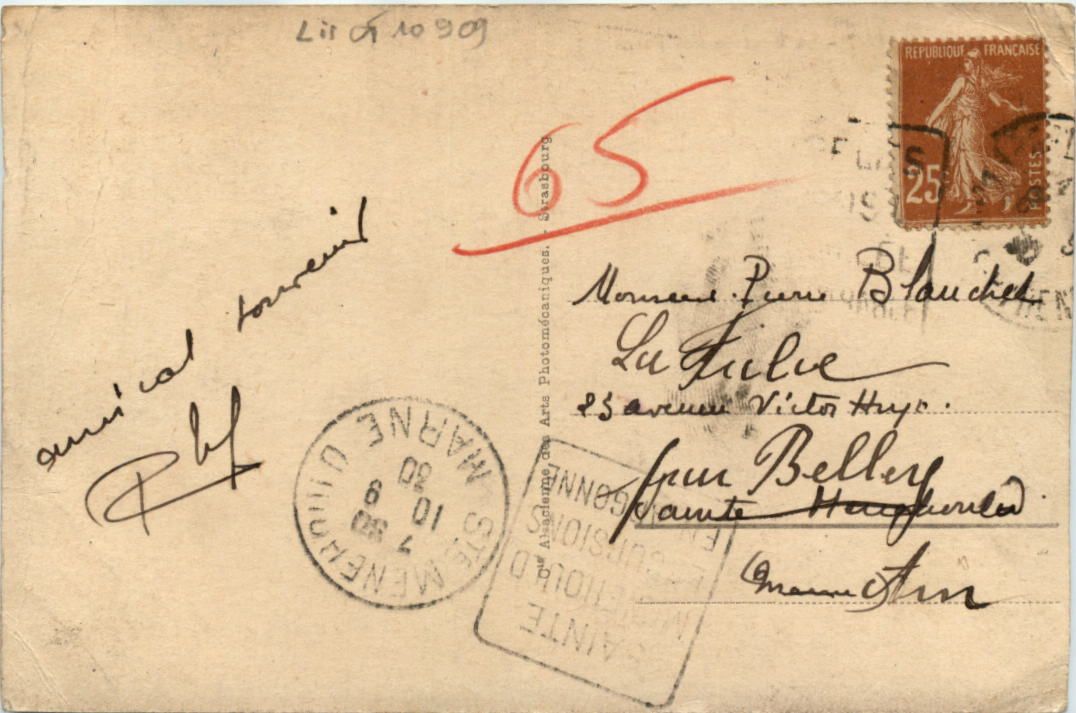 Lis 05 10 909
65
REPUBLIQUE FRANÇAISE
25
POSTES
amical souvenir
Monsieur Pierre Blanchet
La Fulie
23 avenue Victor Hugo.
pour Belley
Sainte Menehould
Marne Ain
Cie Alsacienne des Arts Photomécaniques. - Strasbourg
STE MENEHOULD
MARNE
7 30
10 9
30
SAINTE
MENEHOULD
EXCURSIONS
EN ARGONNE